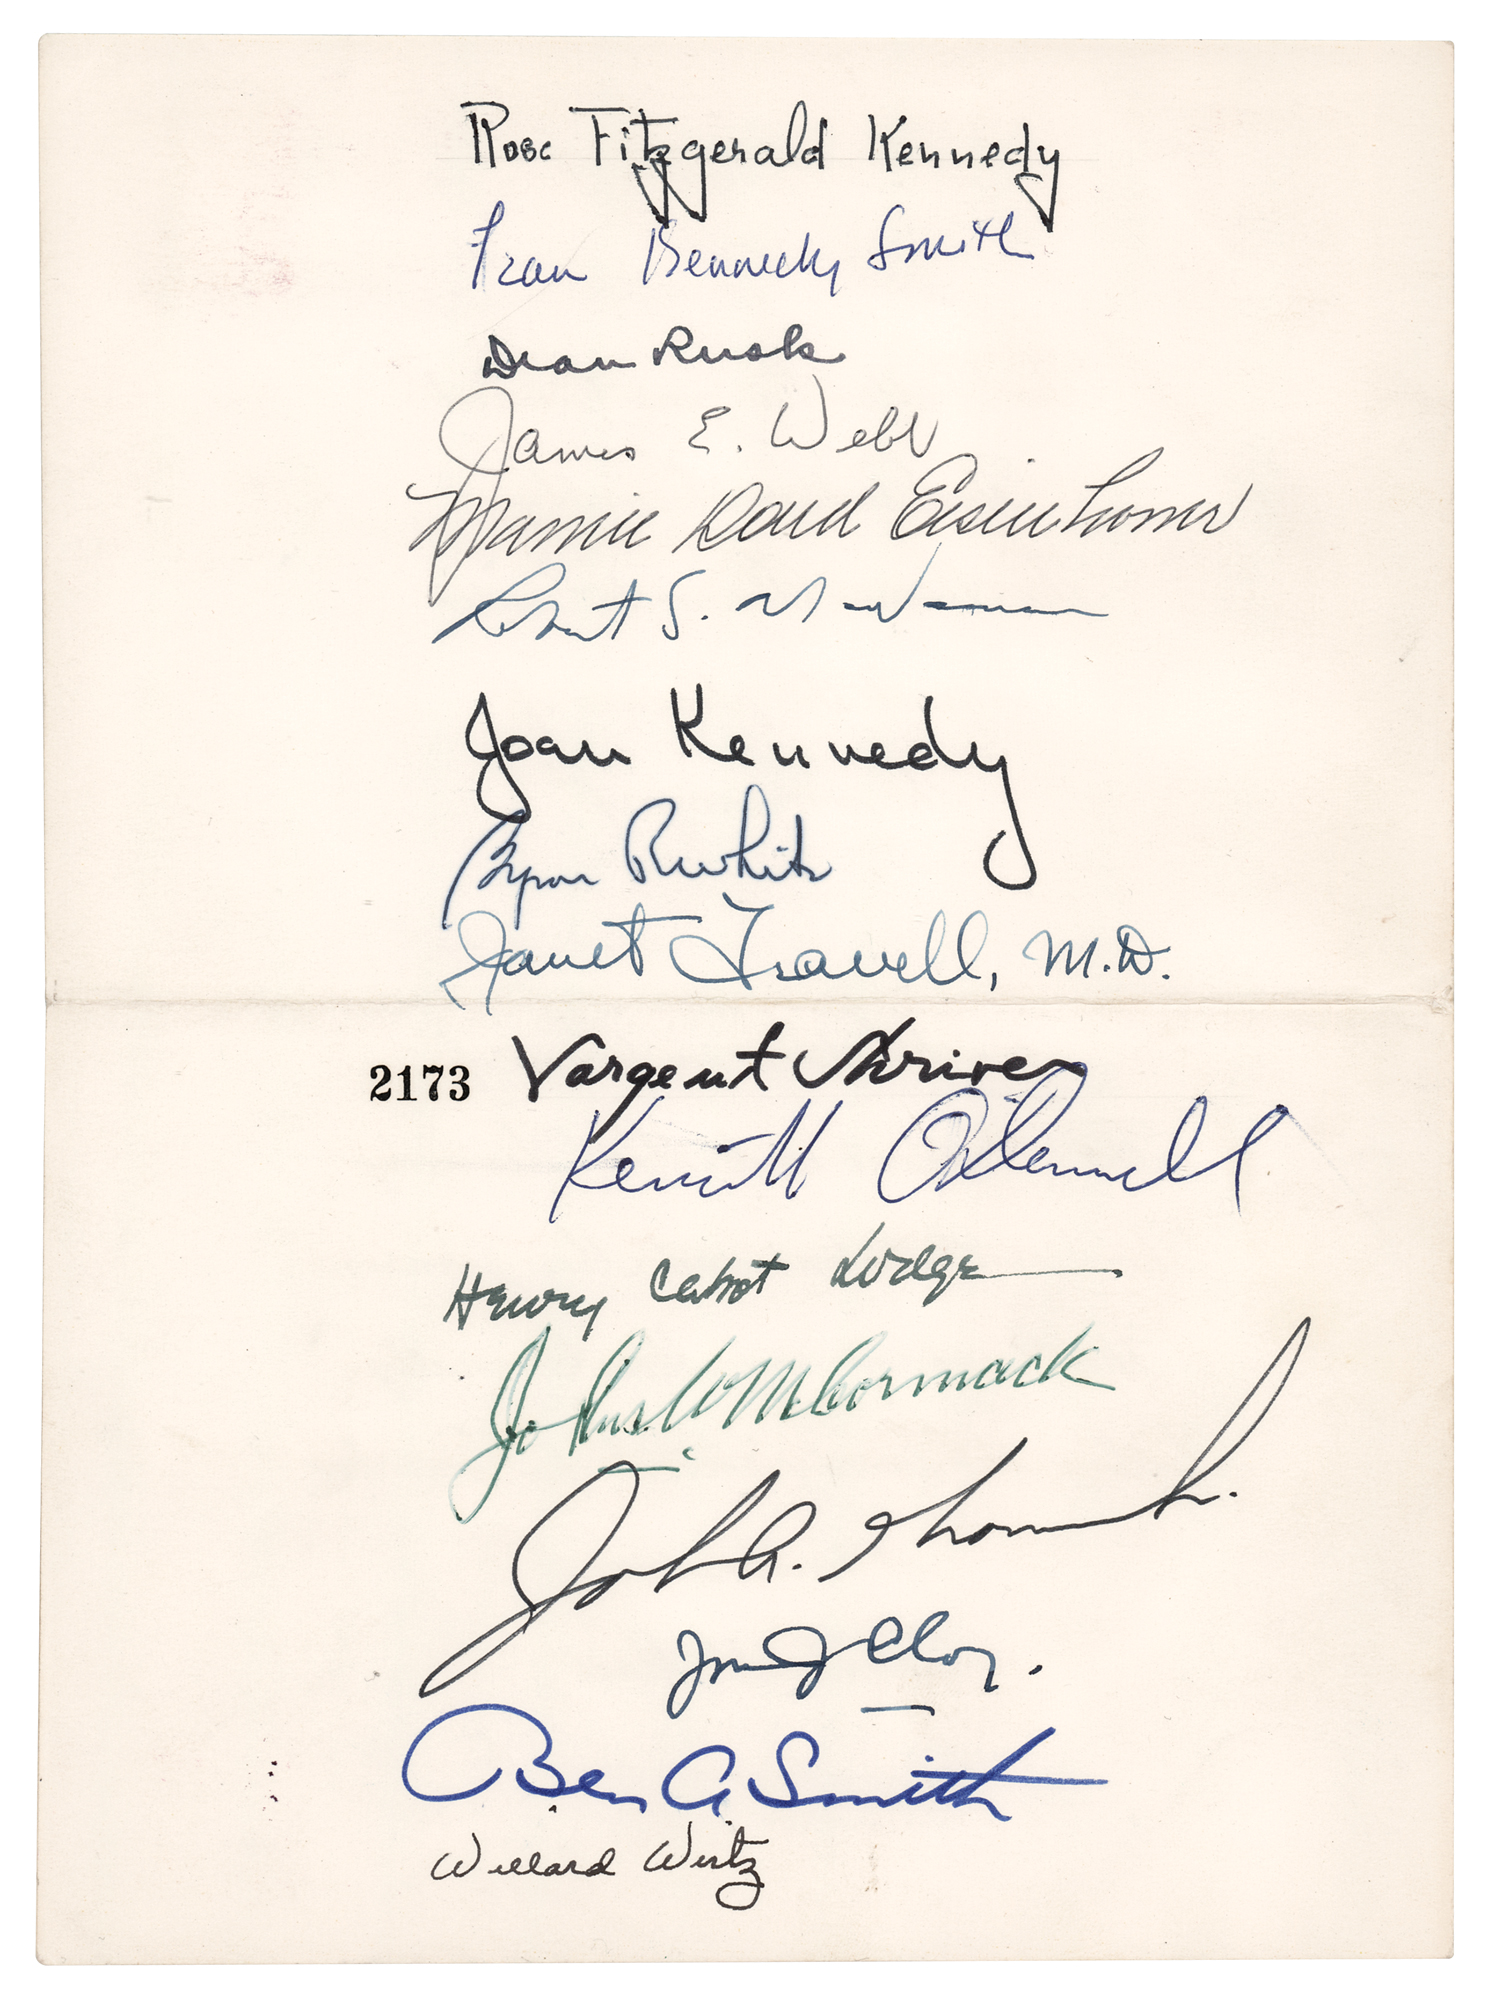 Rose Fitzgerald Kennedy
Jean Kennedy Smith
Dean Rusk
James E. Webb
Mamie Doud Eisenhower
Robert S. McNamara
Joan Kennedy
Byron R White
Janet Travell, M.D.
2173 Sargent Shriver
Kenneth O'Donnell
Henry Cabot Lodge
John W McCormack
John A. Gronouski.
John J McCloy.
Ben A Smith
Willard Wirtz